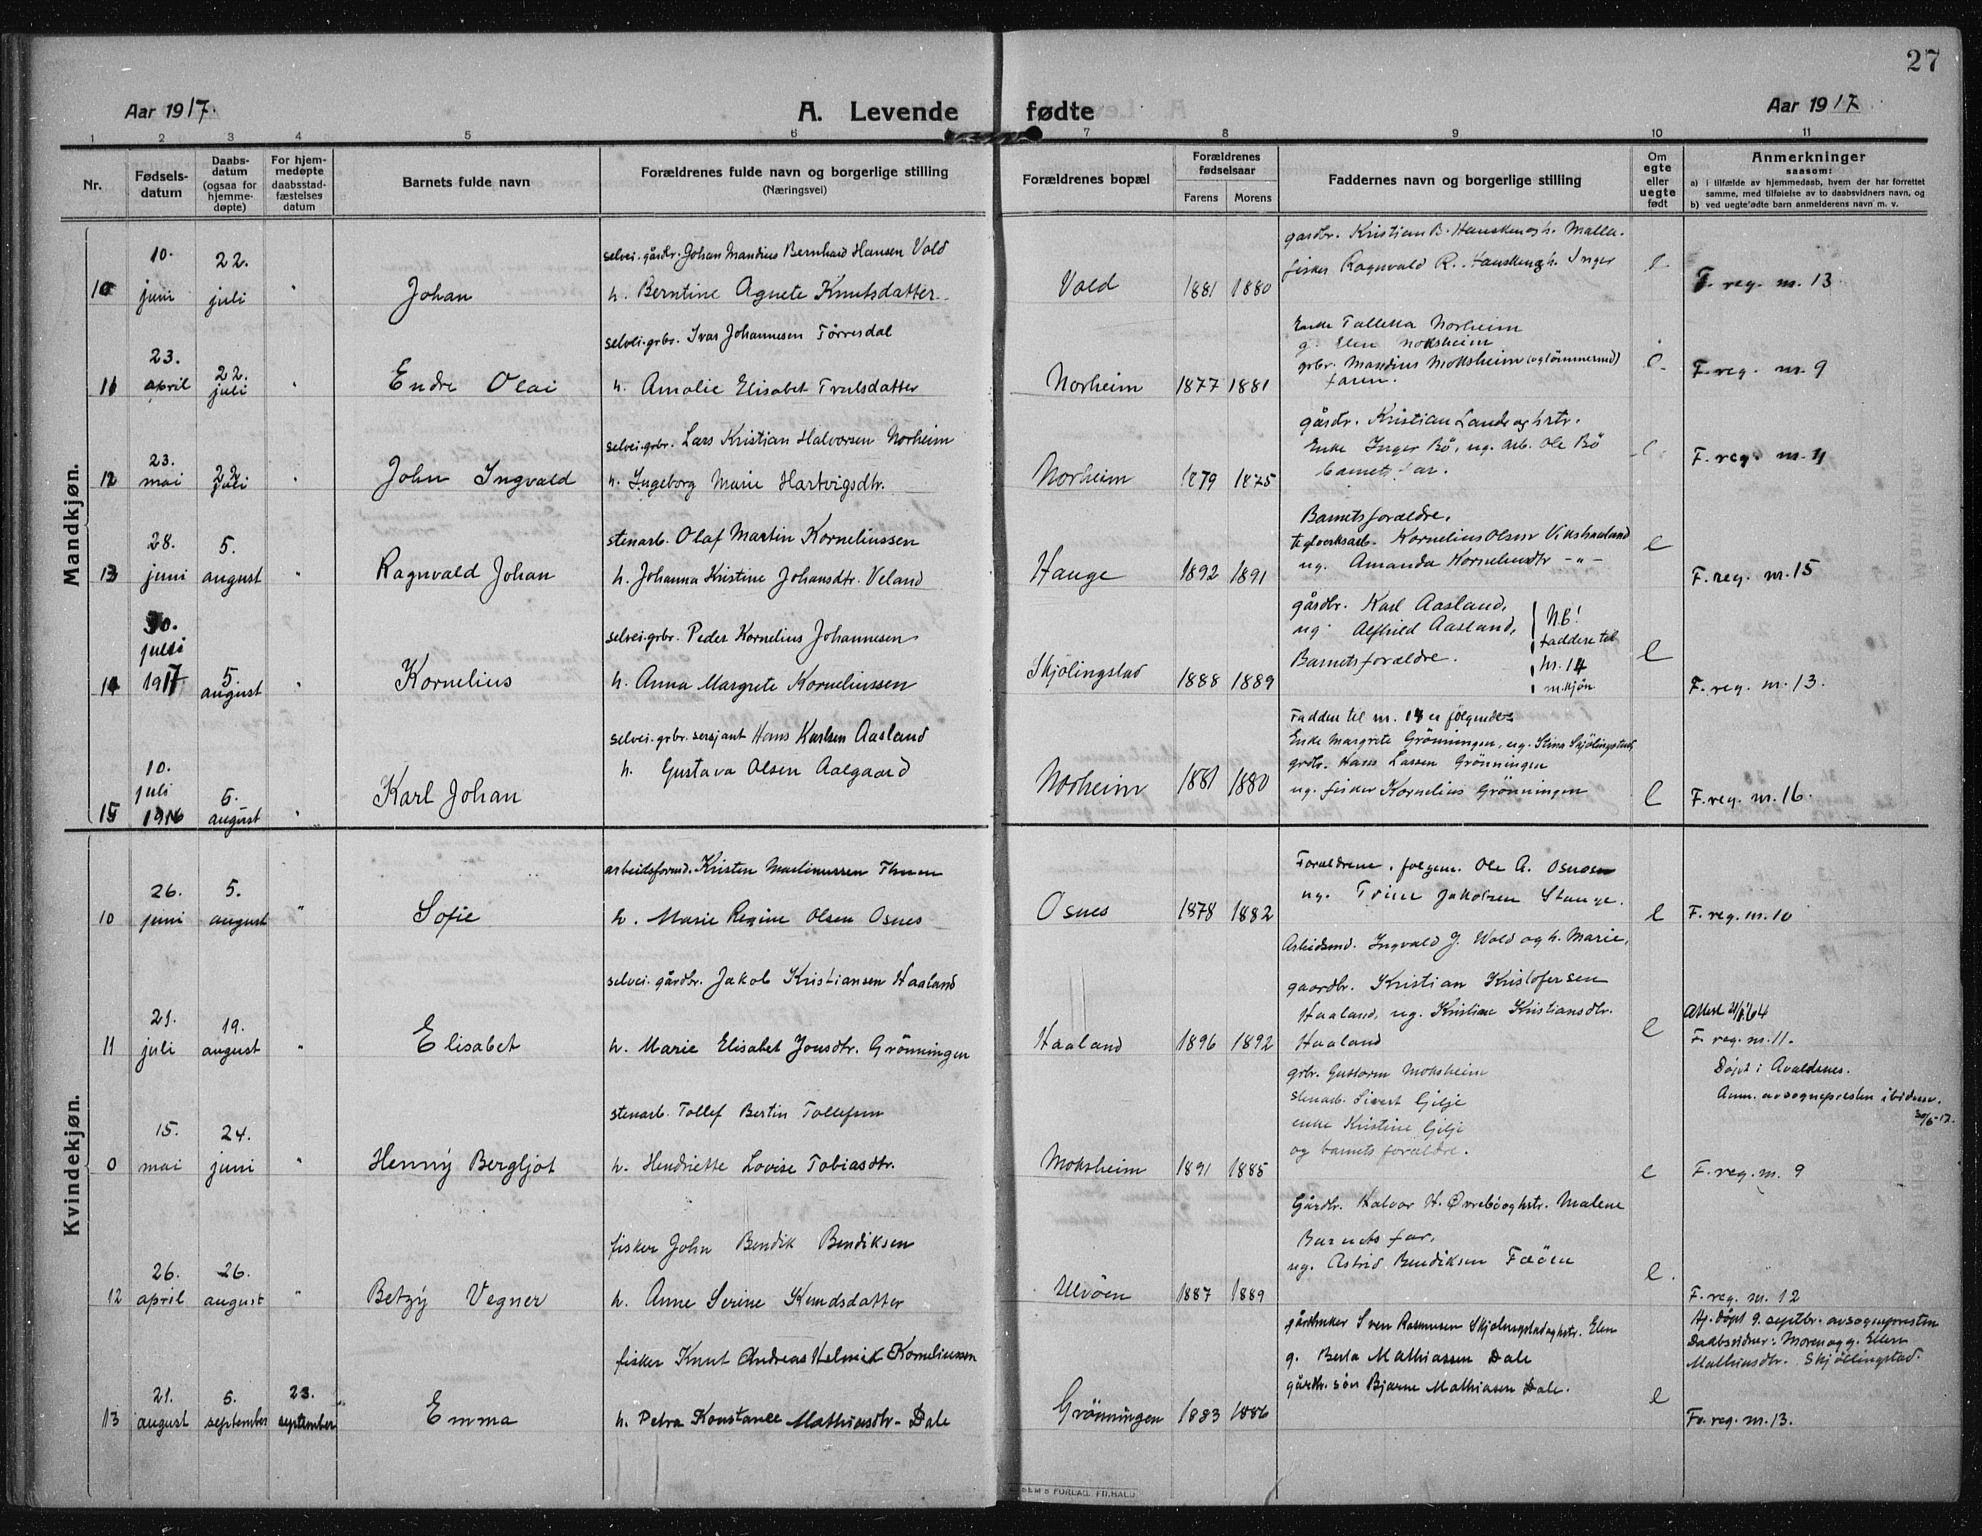 27
Aar 1917.
A. Levende fødte
Aar 1917.
1 2 3 4 5 6 7 8 9 10 11
Nr.
Fødsels-
datum
Daabs-
datum
(ogsaa for
hjemme-
døpte)
For hjem-
medøpte
daabsstad-
fæstelses
datum
Barnets fulde navn
Forældrenes fulde navn og borgerlige stilling
(Næringsvei)
Forældrenes bopæl
Forældrenes
fødselsaar
Farens Morens
Faddernes navn og borgerlige stilling
Om
egte
eller
uegte
født
Anmerkninger
saasom:
a) i tilfælde av hjemmedaab, hvem der har forrettet
samme, med tilføielse av to daabsvidners navn, og
b) ved uegte fødte barn anmelderens navn m. v.
Mandkjøn.
10
10.
juni
22.
juli
"
Johan
selvei. gårdbr. Johan Mandius Bernhard Hansen Vold
h. Berntine Agnete Knutsdatter
Vold
1881 1880
gardbr. Kristian B. Hausken og h. Malla.
fisker Ragnvald R. Hausken og h. Inger
e
F. reg. nr. 13.
11
23.
april
22.
juli
"
Endre Olai
selvei. grbr. Ivar Johannesen Tørresdal
h. Amalie Elisabet Trulsdatter
Norheim
1877 1881
Enke Talletta Norheim
g. Elen Moksheim
grbr. Mandius Moksheim (og tømmermd)
faren.
e.
F. reg. nr. 9
12
23.
mai
22.
juli
"
John Ingvald
selvei. grbr. Lars Kristian Halvorsen Norheim
h. Ingeborg Marie Hartvigsdtr.
Norheim
1879 1875
gårdbr. Kristian Lande og hstr.
Enke Inger Bö, ug. arb. Ole Bö
barnets far.
e.
F. reg. nr. 11
13
28.
juni
5.
august
"
Ragnvald Johan
stenarb. Olaf Martin Korneliussen
h. Johanna Kristine Johansdtr. Veland
Hauge
1892 1891
Barnets forældre.
teglverksarb. Kornelius Olsen Vikshaaland
ug. Amanda Korneliusdtr -"-
e
F. reg. nr. 15
14
30.
juli
1917
5.
august
"
Kornelius
selvei. grbr. Peder Kornelius Johannesen
h. Anna Margrete Korneliussen
Skjölingstad
1888 1889
gårdbr. Karl Aasland,
ug. Alfhild Aasland,
Barnets forældre.
NB!
Faddere til
nr. 14
m.kjøn
e
F. reg. nr. 13.
15
10.
juli
1916
5.
august
"
Karl Johan
selvei. grbr. sersjant Hans Karlsen Aasland
h. Gustava Olsen Aalgaard
Norheim
1881 1880
Faddere til nr. 14 er følgende:
Enke Margrete Grönningen, ug. Stina Skjölingstad,
grdbr. Hans Larsen Grönningen
ug. fisker Kornelius Grönningen
e
F. reg. nr. 16.
Kvindekjøn.
10
26.
juni
5.
august
"
Sofie
arbeidsformd. Kristen Martinussen
h. Marie Regine Olsen Osnes
Osnes
1878 1882
Forældrene, Ole A. Osnes
ug. Trine Jakobsen Stange.
Arbeidsmd. Ingvald J. Wold og h. Marie.
e
F. reg. nr. 10
11
21.
juli
19.
august
"
Elisabet
selvei. gårdbr. Jakob Kristiansen Haaland
h. Marie Elisabet Jonsdtr. Grönningen
Haaland
1896 1892
gaardbr. Kristian Kristofersen
Haaland, ug. Kristine Kristiansdtr.
Haaland
e
Attest 64
F. reg. nr. 11.
0
15.
mai
24.
juni
"
Henny Bergljot
stenarb. Tollef Bertin Tollefsen
h. Hendriette Lovise Tobiasdtr.
Moksheim
1891 1885
grbr. Guttorm Moksheim
stenarb. Sivert Gilje
enke Kristine Gilje
og barnets forældre.
e
Døpt i Avaldsnes.
Anm. av sognepresten ibidem.
30/6-17.
F. reg. nr. 9
12
26.
april
26.
august
"
Betzy Vegner
fisker John Bendik Bendiksen
h. Anne Serine Knudsdatter
Ulvöen
1887 1889
Gårdbr. Halvor H. Øvrebö og hstr. Malene
Barnets far.
ug. Astrid Bendiksen Fæöen
e.
F. reg. nr. 12
13
21.
august
5.
september
23.
september
"
Emma
fisker Knut Andreas Helmik Korneliussen
h. Petra Konstance Mathiasdtr. Dale
Grönningen
1883 1886
gårdbruker Sven Rasmusen Skjölingstad og hstr. Elen
g. Berta Mathiassen Dale
gårdbr. sön Bjarne Mathiasen Dale.
e
Hj. døpt 9. septbr. av sognepresten
Daabsvidner: Moren og g. Ellen
Mathiasdtr. Skjöllingstad.
Fø. reg. nr. 13.
SEM'S FORLAG, FR.HALD